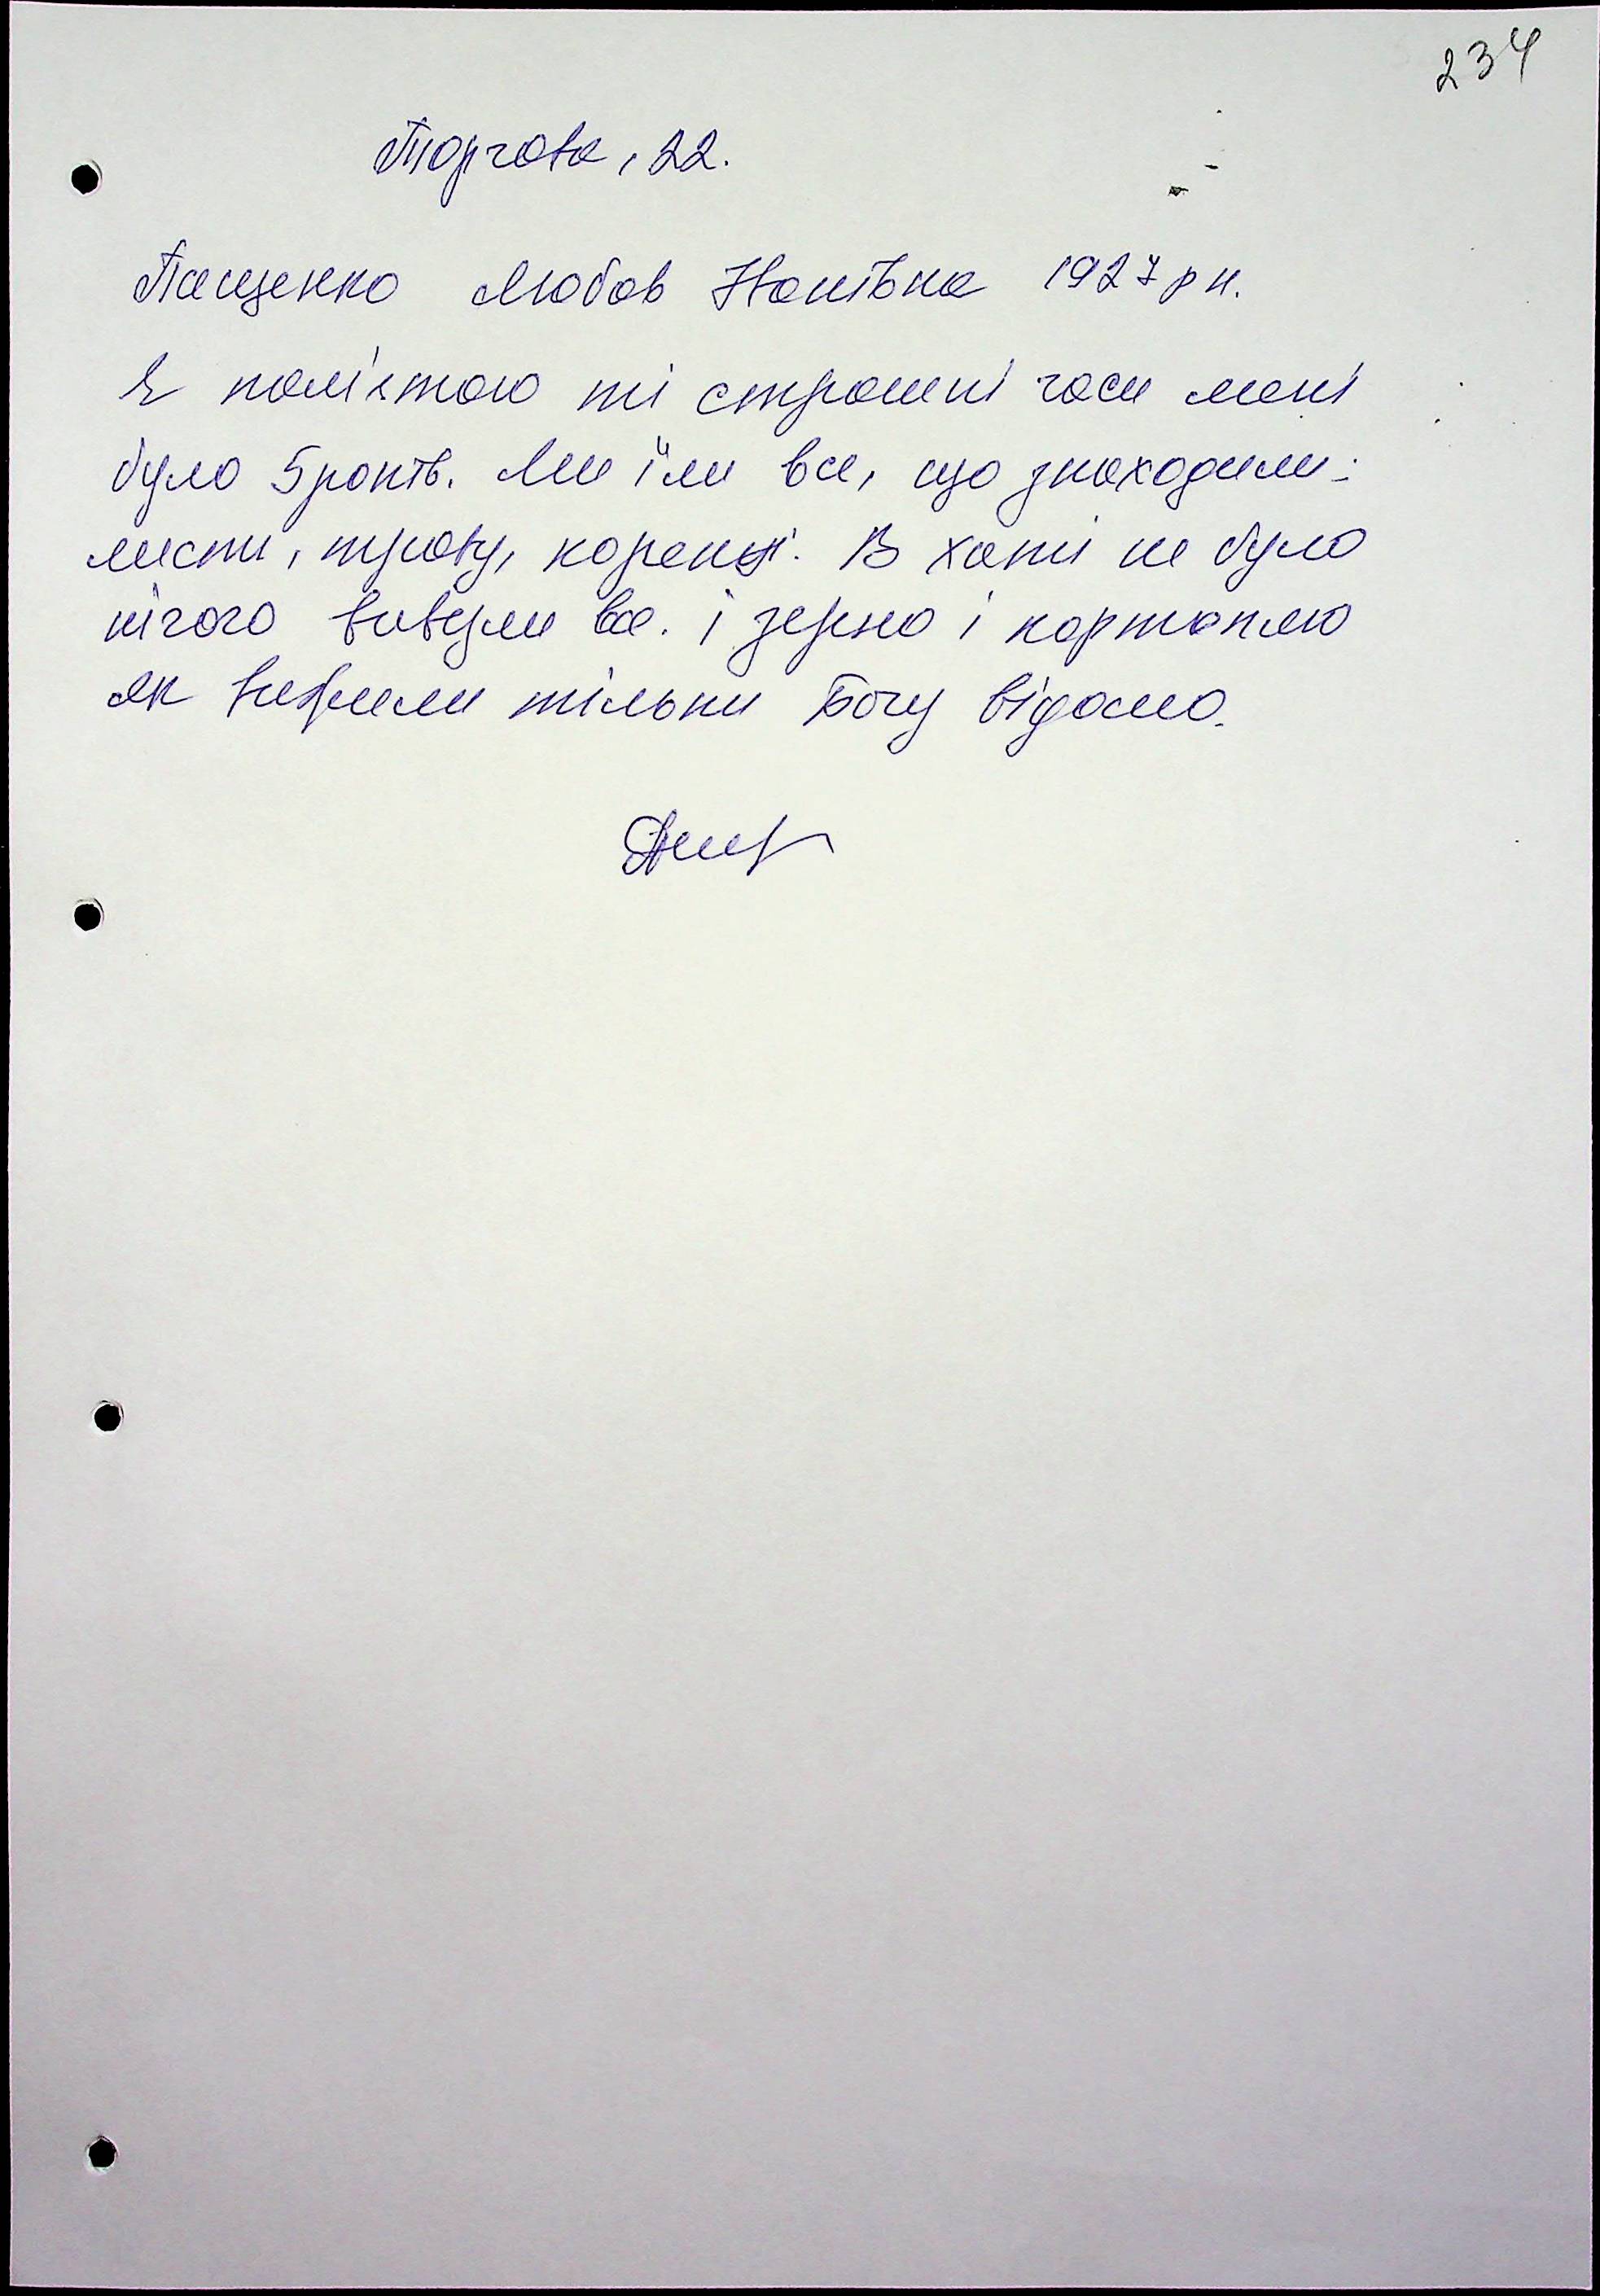 234
Торгова, 22.
Пащенко Любов Нопівна 1927 р н.
Я памʼятаю ті страшні часи мені
було 5 років. Ми їли все, що знаходили:
листя, траву, коренці. В хаті не було
нічого вивезли все. і зерно і картоплю
як вижили тільки Богу відомо.